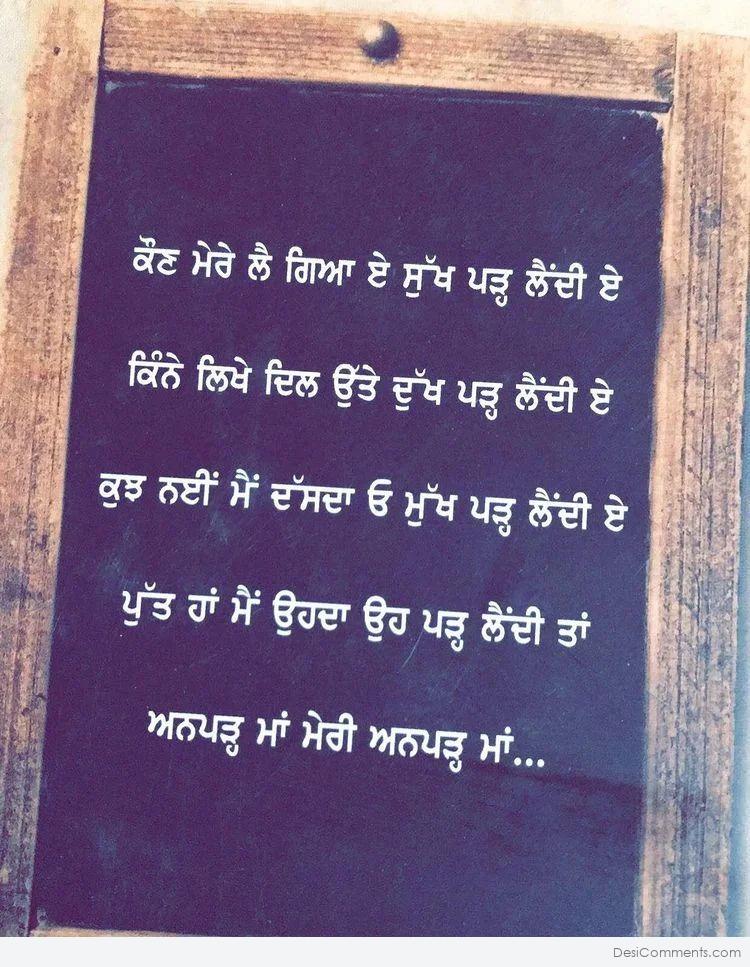 ਕੌਣ ਮੇਰੇ ਲੈ ਗਿਆ ਏ ਸੁੱਖ ਪੜ੍ਹ ਲੈਂਦੀ ਏ
ਕਿੰਨੇ ਲਿਖੇ ਦਿਲ ਉੱਤੇ ਦੁੱਖ ਪੜ੍ਹ ਲੈਂਦੀ ਏ
ਕੁਝ ਨਈਂ ਮੈਂ ਦੱਸਦਾ ਓ ਮੁੱਖ ਪੜ੍ਹ ਲੈਂਦੀ ਏ
ਪੁੱਤ ਹਾਂ ਮੈਂ ਉਹਦਾ ਉਹ ਪੜ੍ਹ ਲੈਂਦੀ ਤਾਂ
ਅਨਪੜ੍ਹ ਮਾਂ ਮੇਰੀ ਅਨਪੜ੍ਹ ਮਾਂ...
DesiComments.com